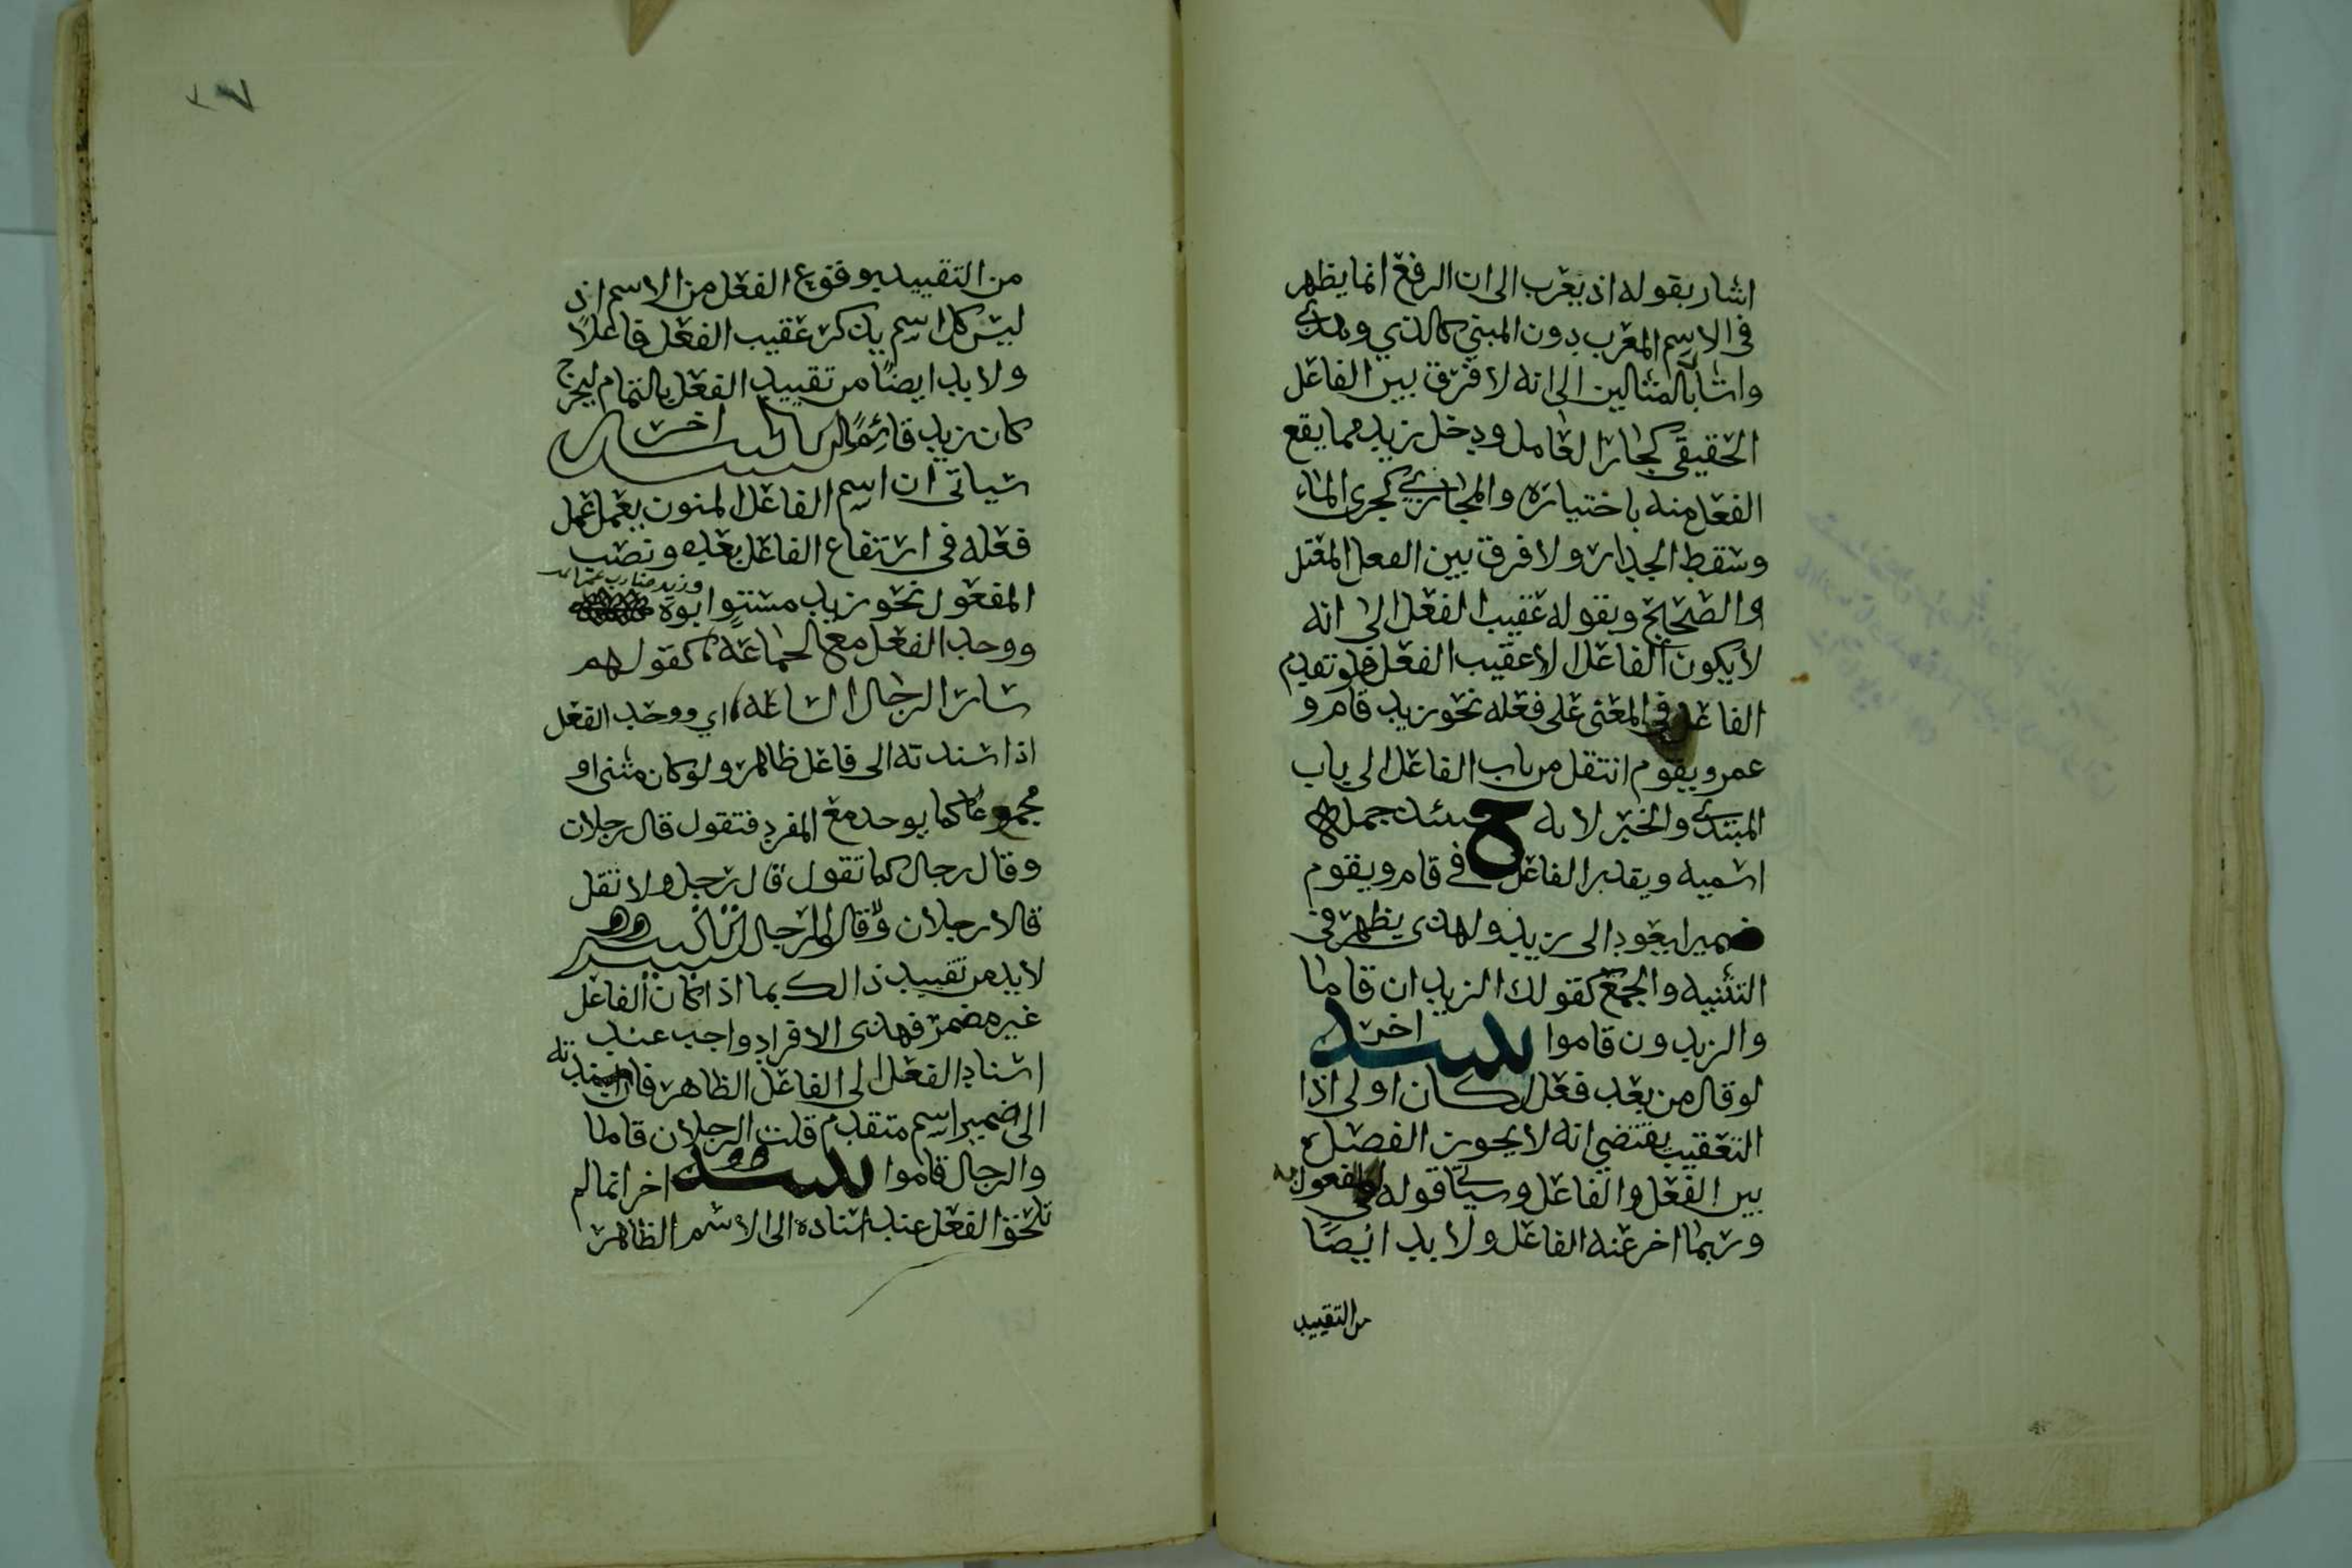 اشار بقوله اذ يعرب الى ان الرفع انما يظهر
في الاسم المعرب دون المبني كالذي وهذي
واشار بالمثالين الى انه لا فرق بين الفاعل
الحقيقي كجار العامل ودخل زيد مما يقع
الفعل منه باختياره والمجازي كجرى الماء
وسقط الجدار ولا فرق بين الفعل المعتل
والصحيح وبقوله عقيب الفعل الى انه
لا يكون الفاعل الا عقيب الفعل فلو تقدم
الفاعل في المعنى على فعله نحو زيد قام و
عمرو يقوم انتقل من باب الفاعل الى باب
المبتدي والخبر لانه حينئذ جملة
اسميه ويقدر الفاعل في قام ويقوم
ضميرا يعود الى زيد ولهذى يظهر في
التثنيه والجمع كقولك الزيدان قاما
والزيدون قاموا تنبيه اخر
لو قال من بعد فعل لكان اولى اذا
التعقيب يقتضي انه لا يجوز الفصل
بين الفعل والفاعل وسياتي قوله في المفعول به
وربما اخر عنه الفاعل ولا بد ايضا
من التقييد
من التقييد بوقوع الفعل من الاسم اذ
ليس كل اسم يذكر عقيب الفعل فاعلاً
ولا بد ايضاً من تقييد الفعل بالتمام ليخرج
كان زيد قائماً تنبيه اخر
سياتي ان اسم الفاعل المنون يعمل عمل
فعله في ارتفاع الفاعل بعده ونصب
المفعول نحو زيد مستوٍ ابوه وزيد ضارب
ووحد الفعل مع الجماعة كقولهم
سار الرجال الساعه اي ووحد الفعل
اذا اسندته الى فاعل ظاهر ولو كان مثنى او
مجموعا كما يوحد مع المفرد فتقول قال رجلان
وقال رجال كما تقول قال رجل ولا تقل
قالا رجلان وقالوا رجال
لا بد من تقييد ذالك بما اذا كان الفاعل
غير مضمر فهذى الافراد واجب عند
اسناد الفعل الى الفاعل الظاهر فان اسندته
الى ضمير اسم متقدم قلت الرجلان قاما
والرجال قاموا تنبيه اخر انما لم
تلحق الفعل عند اسناده الى الاسم الظاهر